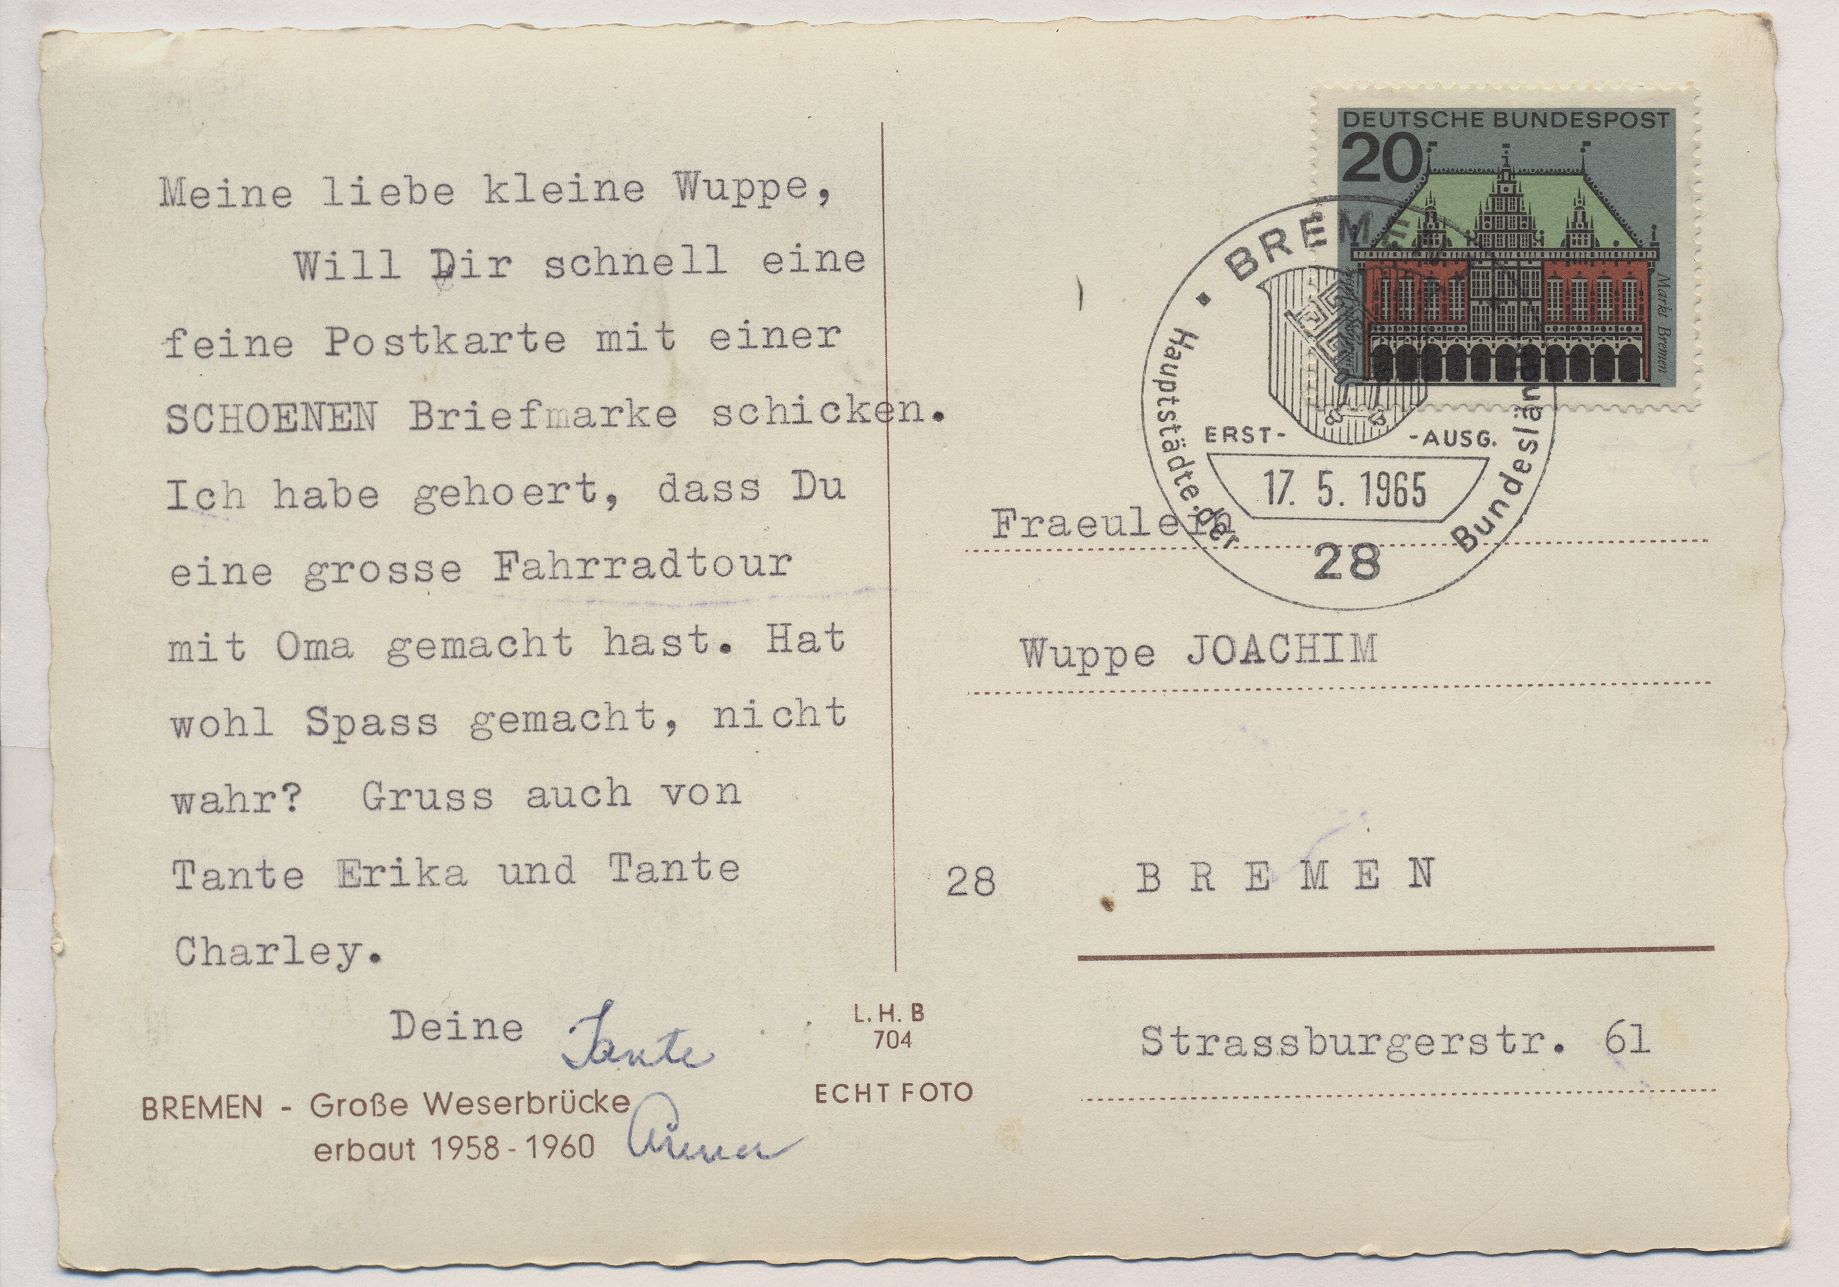 Meine liebe kleine Wuppe,
Will Dir schnell eine
feine Postkarte mit einer
SCHOENEN Briefmarke schicken.
Ich habe gehoert, dass Du
eine grosse Fahrradtour
mit Oma gemacht hast. Hat
wohl Spass gemacht, nicht
wahr? Gruss auch von
Tante Erika und Tante
Charley.
Deine Tante
BREMEN - Große Weserbrücke
erbaut 1958-1960
L.H.B
704
ECHT FOTO
DEUTSCHE BUNDESPOST
20
Markt Bremen
BREMEN
Hauptstädte der Bundesländer
ERST- -AUSG.
17. 5. 1965
28
Fraeulein
Wuppe JOACHIM
28 B R E M E N
Strassburgerstr. 61